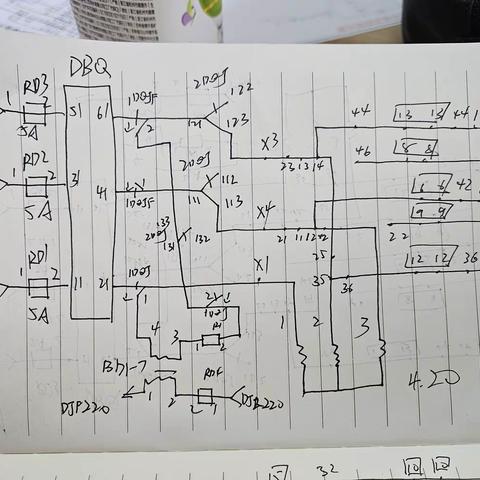 DBQ
RD3
1 2
5A
51 61
1DQJF
1 2
2DQJ
121 122
123
X3
23 13 14
44
13 13
44
46
8 8
RD2
1 2
5A
31 41
1DQJF
2DQJ
111 112
113
X4
21 11 12
6 6
42
9 9
22
133
2DQJ
131 132
RD1
1 2
5A
11 21
1DQJ
1
X1
25
35 36
12 12
36
2 1
1DQJ
R1
1 2
4 3
1 2 3
BD1-7
1 2
RD4
2 1
DJF220
DJZ220
4.20
32